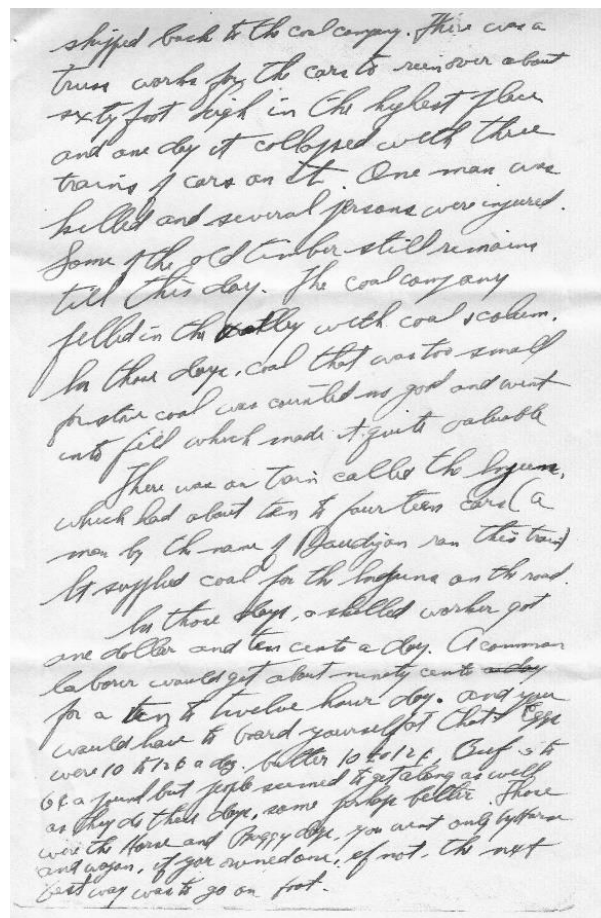 shipped back to the coal company. There was a
truss works for the cars to run over about
sixty foot high in the highest place
and one day it collapsed with three
trains of cars on it. One man was
killed and several persons were injured.
Some of the old timber still remains
till this day. The coal company
filled in the valley with coal &
In those days, coal that was too small
for stove coal was counted no good and went
into fill which made it quite valuable
There was an train called the
which had about ten to four teen cars (a
man by the name of ran this train)
It supplied coal for the on the road.
In those days, a skilled worker got
one dollar and ten cents a day. A common
laborer would get about ninety cents a day
for a ten to twelve hour day. and you
would have to board yourself at that. Eggs
were 10 to 12¢ a dog. butter 10 to 12¢, Beef 5 to
6¢ a pound but people seemed to get along as well
as they do these days, some perhaps better. Those
were the Horse and Buggy days, you went only by Horse
and wagon, if you owned one, if not, the next
best way was to go on foot.